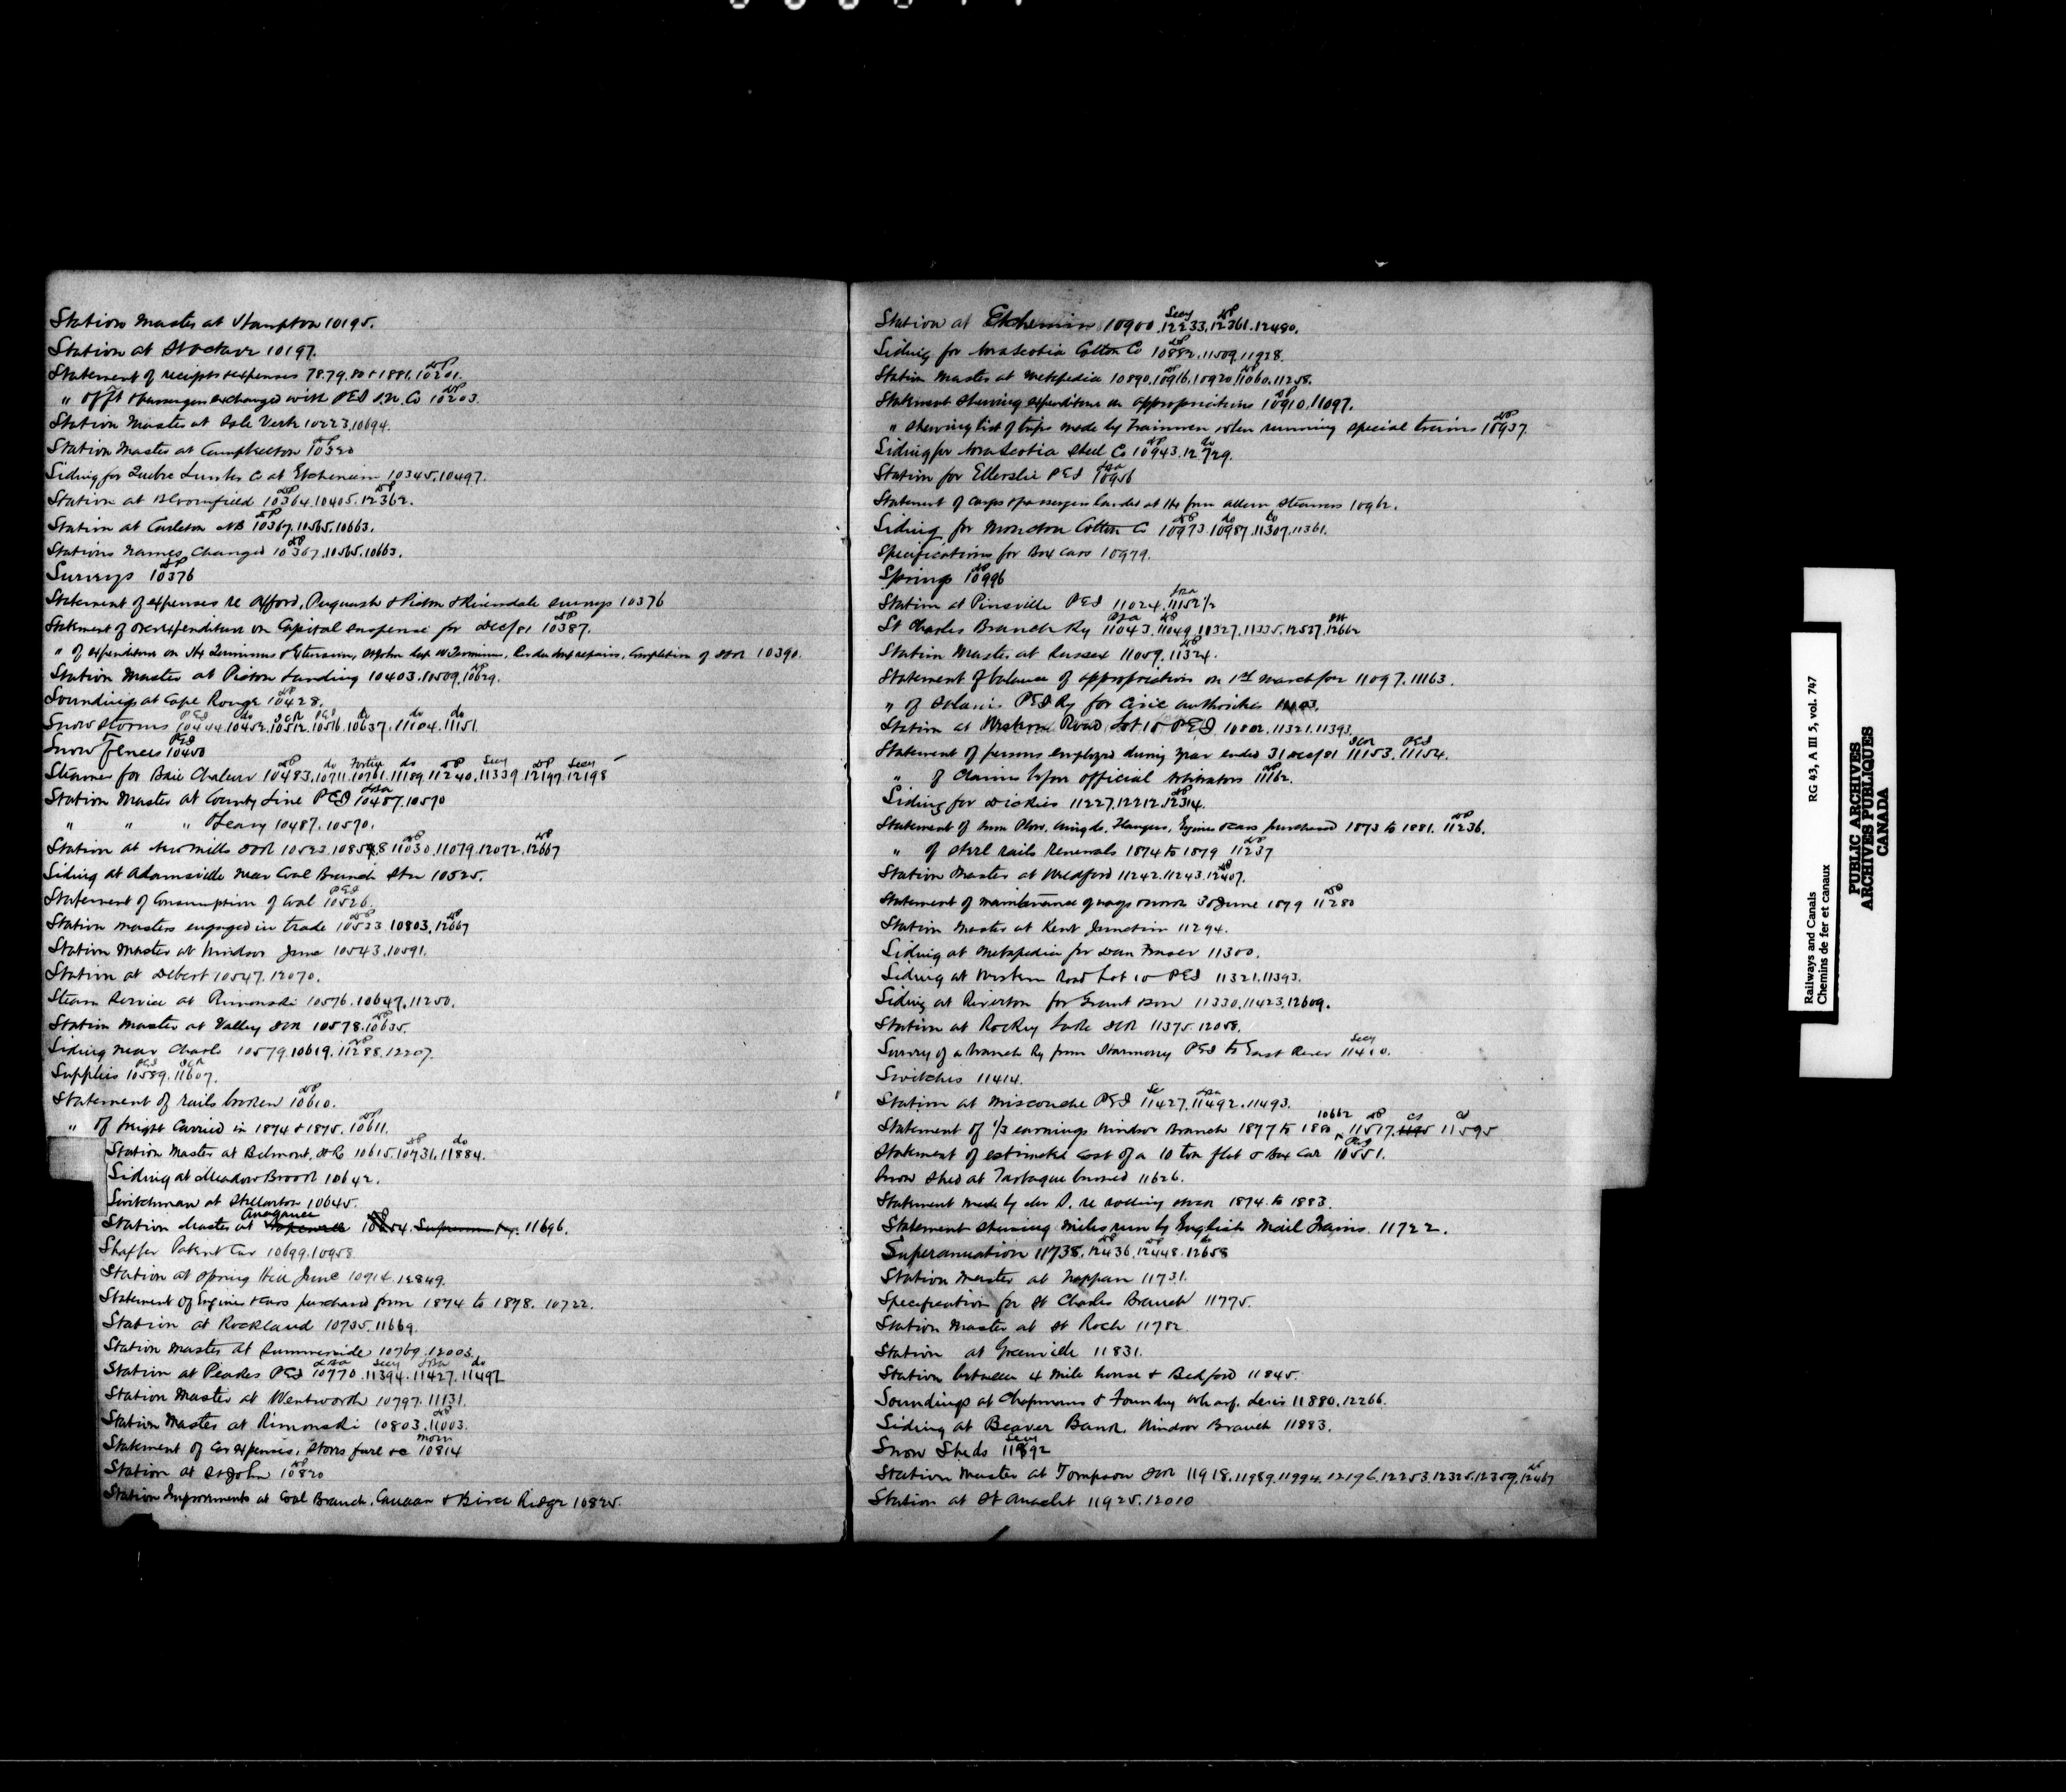 Station Master at Hampton 10195.
Station at St Octave 10197.
Statement of receipts & expenses 78.79.80 & 1881. 10201.
" of ft & passengers exchanged with PEI S.N. Co 10203.
Station Master at Isle Verte 10223, 10694.
Station Master at Campbellton 10320
Siding for Quebec Lumber Co at Etchemin 10345, 10497.
Station at Bloomfield 10364, 10405, 12362.
Station at Carleton NB 10367, 10565, 10663.
Stations names changed 10367, 10565, 10663.
Surveys 10376
Statement of expenses re Oxford, Pugwash & Pictou & Riversdale surveys 10376
Statement of over expenditure on Capital suspense for Dec/81 10387.
" of expenditure on Hx Terminus & Extension, St John Deep W Terminus, repairs, Completion of ICR 10390.
Station Master at Pictou Landing 10403, 10509, 10629.
Soundings at Cape Rouge 10428.
Snow storms 10444, 10452, 10512, 10516, 10637, 11104, 11151.
Snow Fences 10450
Steamer for Baie Chaleur 10483, 10711, 10761, 11189, 11240, 11339, 12197, 12198
Station Master at County Line PEI 10487, 10570
" " " O'Leary 10487, 10570.
Station at New Mills ICR 10523, 10858, 11030, 11079, 12072, 12667
Siding at Adamsville near Coal Branch Stn 10525.
Statement of Consumption of Coal 10526.
Station masters engaged in trade 10533, 10803, 12667
Station Master at Windsor Junc 10543, 10591.
Station at Debert 10547, 12070.
Steam Service at Rimouski 10576, 10647, 11250.
Station Master at Valley ICR 10578, 10635.
Siding near Charlo 10579, 10619, 11288, 12207.
Supplies 10589, 11607.
Statement of rails broken 10610.
" of freight Carried in 1874 & 1875. 10611.
Station Master at Belmont, ICR 10615, 10731, 11884.
Siding at Meadow Brook 10642.
Switchman at Stellarton 10645.
Station Master at Anagance 10654. 11696.
Shaffer Patent Car 10699, 10958
Station at Spring Hill Junc 10914, 12849.
Statement of Engines & cars purchased from 1874 to 1878. 10722.
Station at Rockland 10735, 11669.
Station master at Summerside 10769, 12003.
Station at Peakes PEI 10770, 11394, 11427, 11492
Station Master at Wentworth 10797, 11131.
Station Master at Rimouski 10803, 11003.
Statement of Car expenses, stores fuel &c 10814
Station at St John 10820
Station Improvements at Coal Branch, Canaan & Birch Ridge 10825.
Station at Etchemin 10900, 12233, 12361, 12480.
Siding for Nova Scotia Cotton Co 10882, 11509, 11928.
Station Master at Metapedia 10890, 10916, 10920, 11060, 11258.
Statement shewing expenditure on appropriations 10910, 11097.
" shewing list of trips made by Trainmen when running special trains 10937.
Siding for Nova Scotia Steel Co 10943, 12729.
Station for Ellerslie PEI 10956
Statement of cargo & passengers landed at Hx from Allan Steamers 10962.
Siding for Moncton Cotton Co 10973, 10987, 11307, 11361.
Specifications for Box Cars 10979.
Springs 10996
Station at Pinsville PEI 11024, 11152 1/2
St Charles Branch Ry 11043, 11049, 10327, 11335, 12527, 12662
Station Master at Sussex 11059, 11324.
Statement of balance of appropriation on 1st March for 11097, 11163.
" of Salaries PEI Ry for Civic authorities 11103.
Station at Western Road Lot 10 PEI 10802, 11321, 11393.
Statement of persons employed during year ended 31 Dec/81 11153, 11154.
" of Claims before official Arbitrators 11162.
Siding for Dickies 11227, 12212, 12314.
Statement of Snow Plows, Wing do, Flangers, Engines & cars purchased 1873 to 1881. 11236.
" of steel rails renewals 1874 to 1879 11237
Station Master at Bedford 11242, 11243, 12407.
Statement of maintenance of way 30 June 1879 11280
Station Master at Kent Junction 11294.
Siding at Metapedia for Dan Fraser 11300.
Siding at Western Road Lot 10 PEI 11321, 11393.
Siding at Riverton for Grant 11330, 11423, 12609.
Station at Rocky Lake ICR 11375, 12058.
Survey of a branch Ry from Harmony PEI to East River 11410.
Switches 11414.
Station at Miscouche PEI 11427, 11492, 11493.
Statement of 1/3 earnings Windsor Branch 1877 to 1880, 10662 11517, 11595
Statement of estimated cost of a 10 ton flat & Box Car 10551.
Snow Shed at Tartague burned 11626.
Statement made by re rolling stock 1874 to 1883.
Statement shewing miles run by English Mail Trains. 11722.
Superanuation 11738, 12436, 12448, 12658
Station Master at Nappan 11731.
Specification for St Charles Branch 11775.
Station Master at St Roch 11782.
Station at Greenville 11831.
Station between 4 Mile house & Bedford 11845.
Soundings at Chapmans & Foundry wharf, Levis 11880, 12266.
Siding at Beaver Bank, Windsor Branch 11883.
Snow Sheds 11892
Station Master at Tompson ICR 11918, 11989, 11994, 12196, 12253, 12325, 12359, 12467
Station at St Anaclet 11925, 12010
Railways and Canals RG 43, A III 5, vol. 747
Chemins de fer et canaux
PUBLIC ARCHIVES
ARCHIVES PUBLIQUES
CANADA